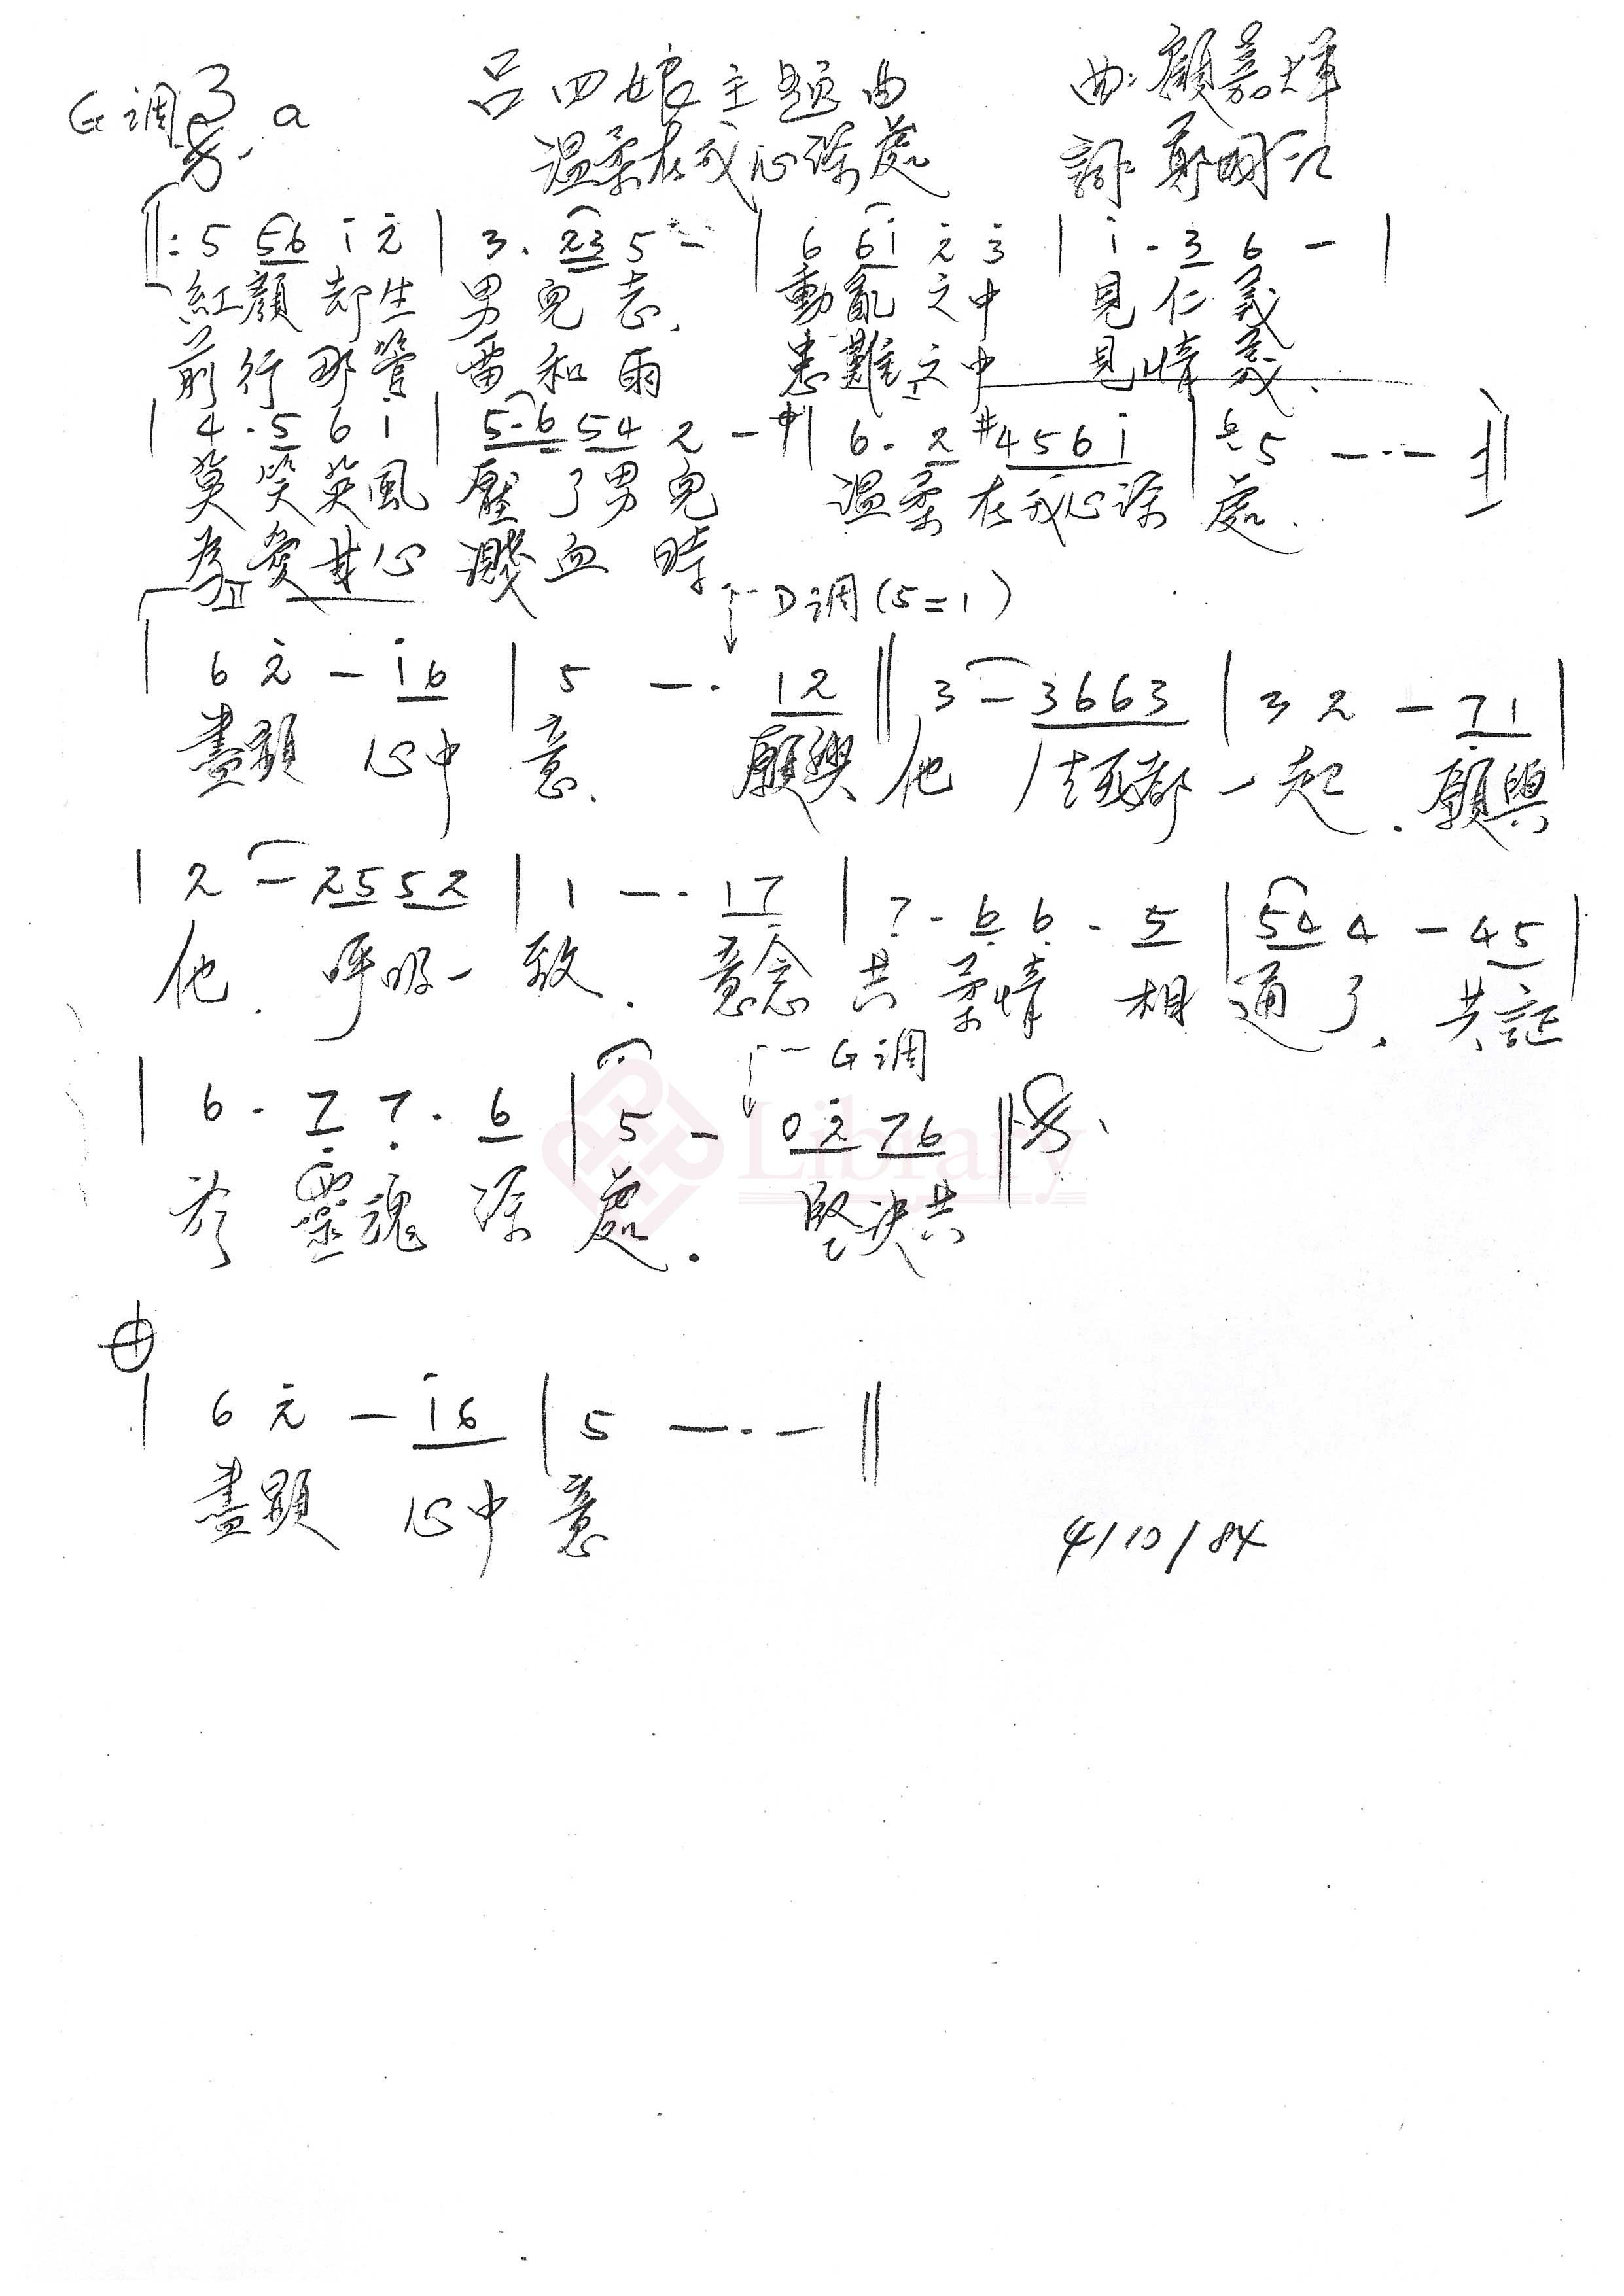 G调 a 呂四娘主題曲 曲:顧嘉煇
溫柔在我心深處 詞:鄭國江
‖: 5 56 i 2̇ | 3. 23 5 - | 6 6i 2̇ 3̇ | i - 3 6 - |
紅顏却生 男兒志. 動亂之中 見仁義
前行那管 雷和雨 患難之中 見情義.
| 4 . 5 6 1 | 5 - 6 54 2 - | 6 . 2 #4 5 6 i | 5 - · -
莫笑英風 壓了男兒 溫柔在我心深處.
為愛甘心 濺血時
II D调(5=1)
6 2̇ - i6 | 5 - . 12 ‖ 3 - 3663 | 3 2 - 71 |
盡顯 心中意. 願與他 生死都一起. 願與
| 2 - 2552 | 1 - . 17 | 7 - 6 6 - 5 | 54 4 - 45 |
他. 呼吸一致. 意念共柔情相通了. 共証
G调
| 6 - 7 7 . 6 | 5 - 02̇ 76 ‖
於靈魂深處. 堅决共
Library
| 6 2̇ - i6 | 5 - . - ‖
盡顯 心中意
4/10/84